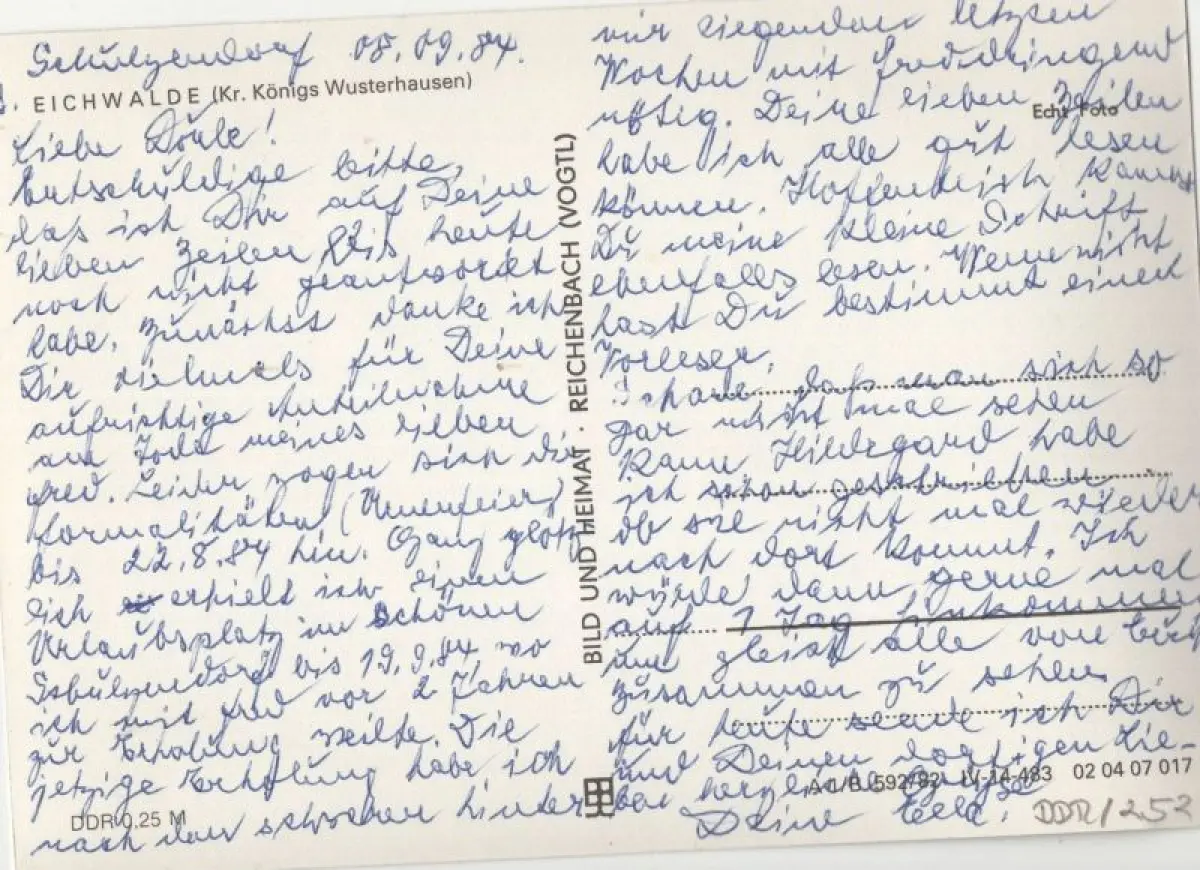 Schulzendorf 08.09.84.
EICHWALDE (Kr. Königs Wusterhausen)
Liebe
Entschuldige bitte,
das ich Dir auf Deine
lieben Zeilen bis heute
noch nicht geantwortet
habe. Zunächst danke ich
Dir vielmals für Deine
aufrichtige Anteilnahme
am Tode meines lieben
Fred. Leider zogen sich die
Formalitäten (Urnenfeier)
bis 22.8.84 hin. Ganz plötz
lich erhielt ich einen
Urlaubsplatz im schönen
Schulzendorf bis 19.9.84 wo
ich mit Fred vor 2 Jahren
zur Erholung weilte. Die
jetzige Erholung habe ich
nach den schweren hinter
DDR 0,25 M
BILD UND HEIMAT · REICHENBACH (VOGTL)
mir liegenden letzten
Wochen mit Fred dringend
nötig. Deine lieben Zeilen
Echt Foto
habe ich alle gut lesen
können. Hoffentlich kannst
Du meine kleine Schrift
ebenfalls lesen. Wenn nicht
hast Du bestimmt einen
Vorleser.
Schade, daß man sich so
gar nicht mal sehen
kann. Hildegard habe
ich schon geschrieben
ob sie nicht mal wieder
nach dort kommt. Ich
würde dann gerne mal
auf 1 Tag hinkommen
um gleich alle von Euch
zusammen zu sehen.
Für heute sende ich Dir
und Deinen dortigen Lie-
ben herzliche Grüße
Deine
A 1/B 592/82 IV-14-483 02 04 07 017
DDR/252